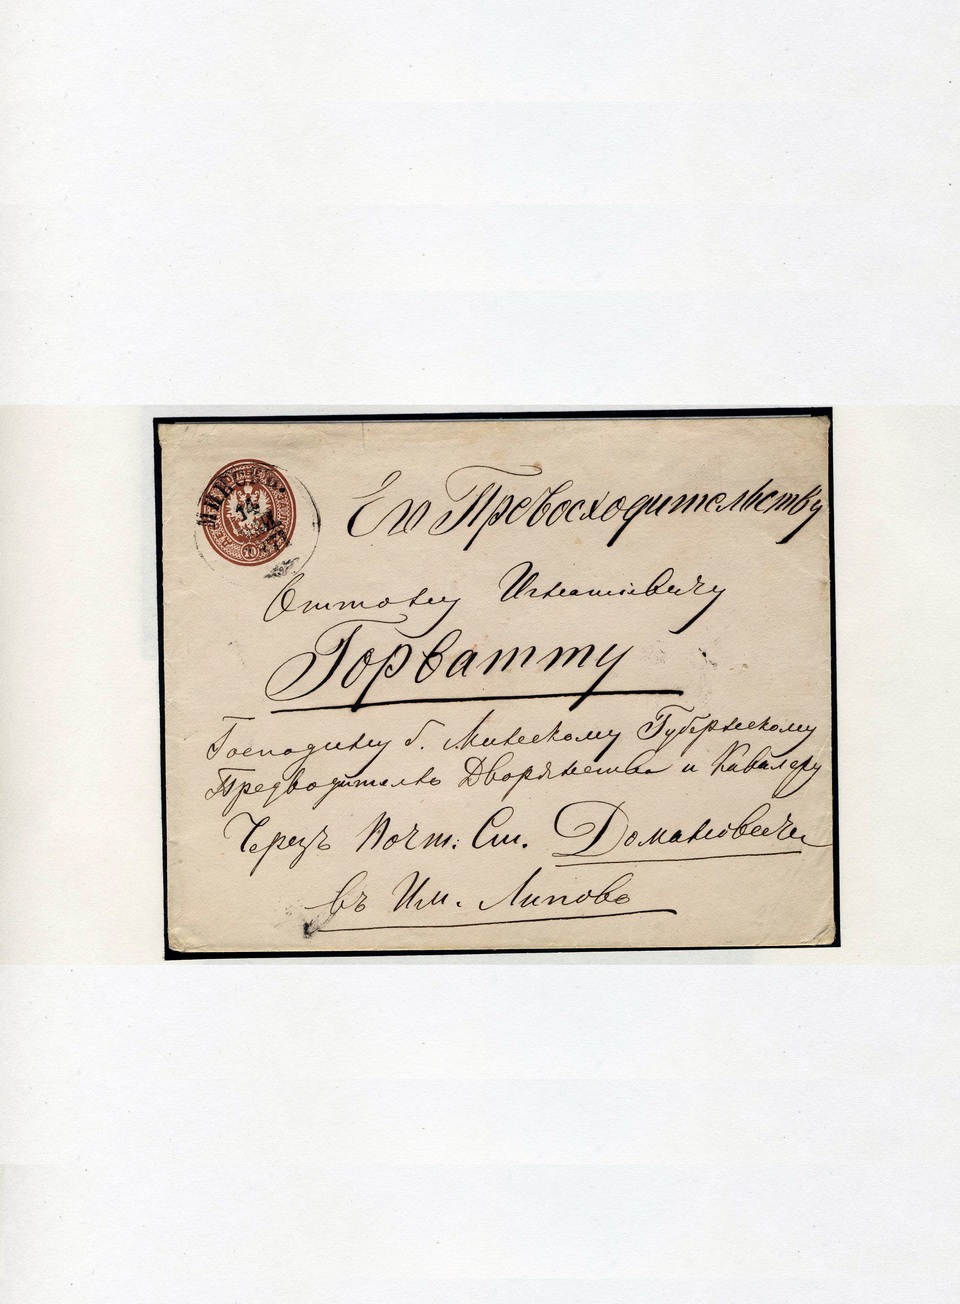 Его Превосходительству
Оттону Игнатіевичу
Горватту
Господину б. Минскому Губернскому
Предводителю Дворянства и Кавалеру
Черезъ Почт: Ст. Домановичи
въ Им. Липово
МИНСКЪ
14
10